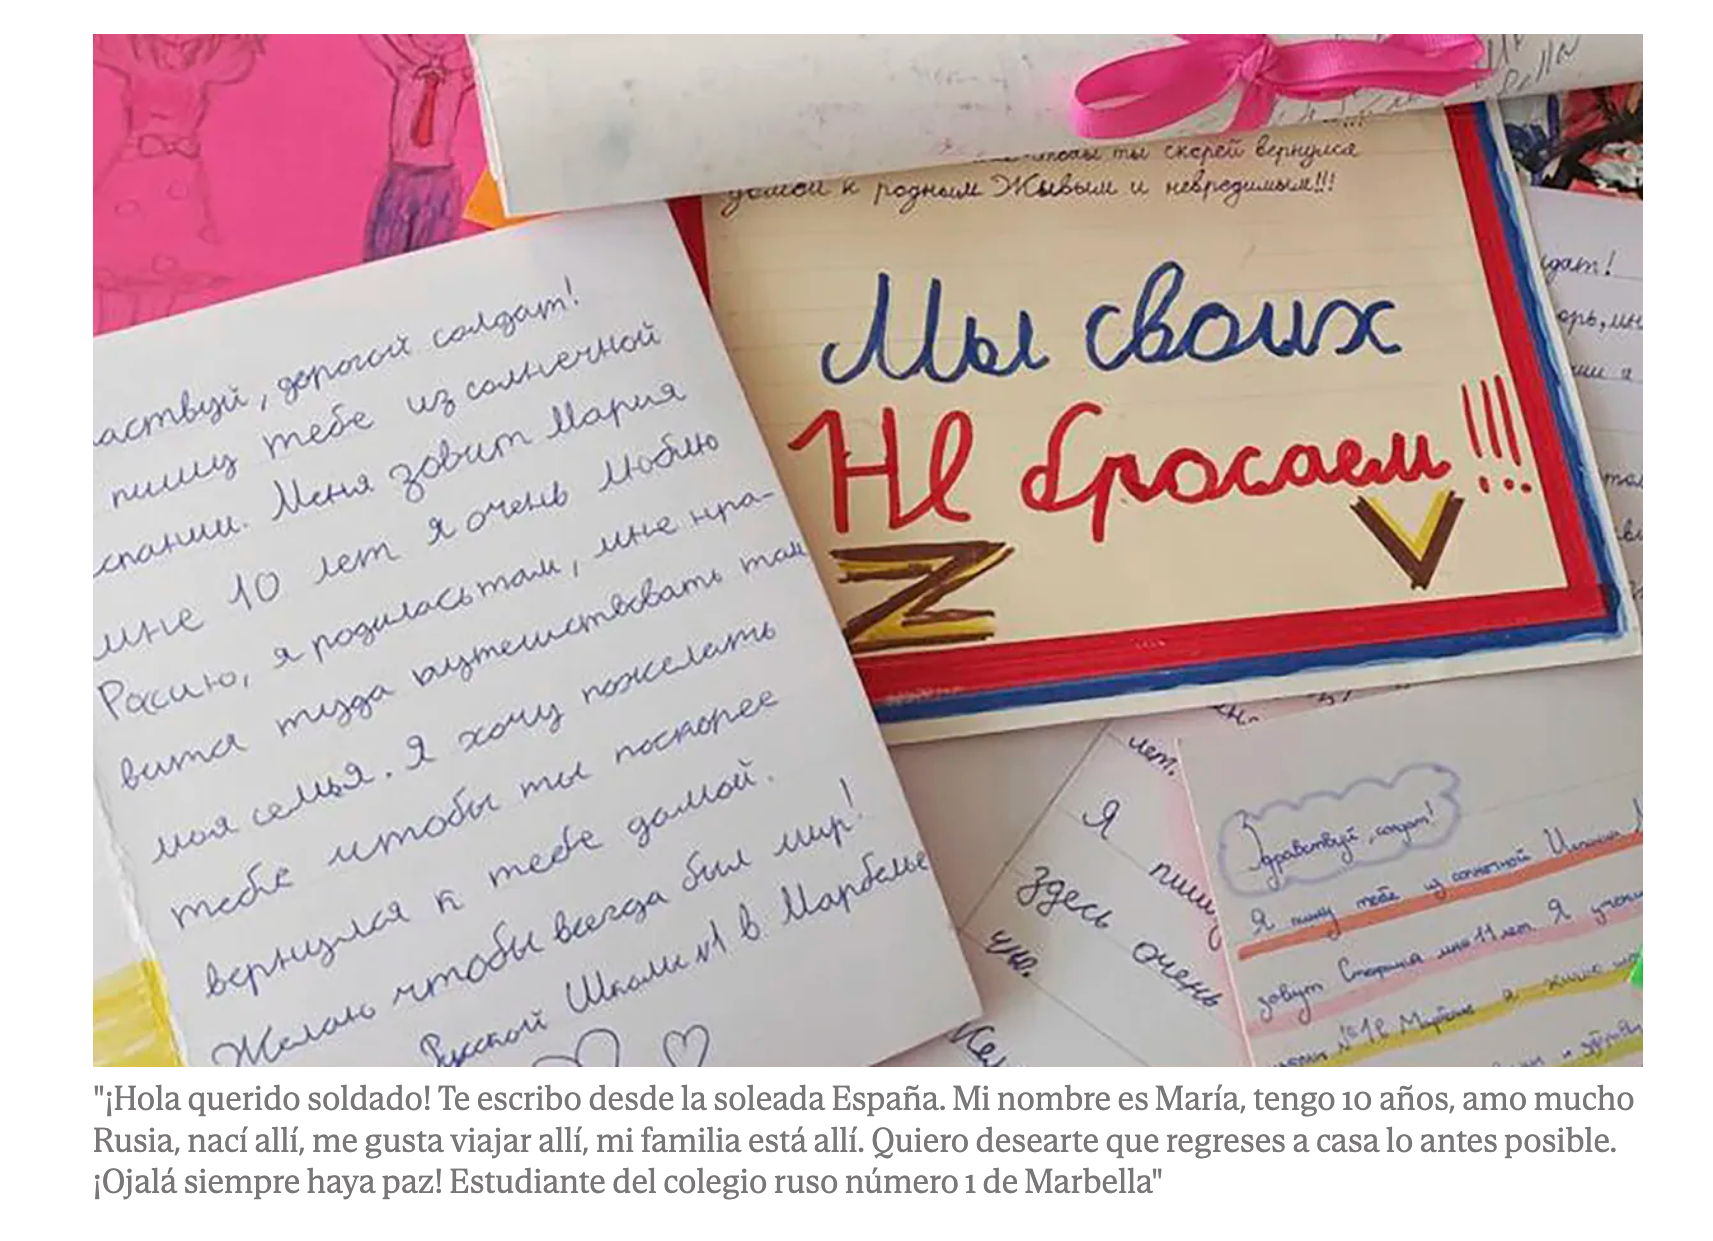 чтобы ты скорей вернулся
домой к родным Живым и невредимым!!!
Мы своих
Не бросаем!!!
Z
V
аствуй, дорогой солдат!
пишу тебе из солнечной
спании. Меня зовут Мария
мне 10 лет я очень люблю
Россию, я родилась там, мне нра-
вится туда путешествовать там
моя семья. Я хочу пожелать
тебе чтобы ты поскорее
вернулся к тебе домой.
Желаю чтобы всегда был мир!
Русской Школы №1 в Марбелье
дат!
лет.
Я пишу
здесь очень
Здравствуй, солдат!
Я пишу тебе из солнечной Испании
зовут мне 11 лет. Я учени
№1 в Марбелье я живу
"¡Hola querido soldado! Te escribo desde la soleada España. Mi nombre es María, tengo 10 años, amo mucho
Rusia, nací allí, me gusta viajar allí, mi familia está allí. Quiero desearte que regreses a casa lo antes posible.
¡Ojalá siempre haya paz! Estudiante del colegio ruso número 1 de Marbella"